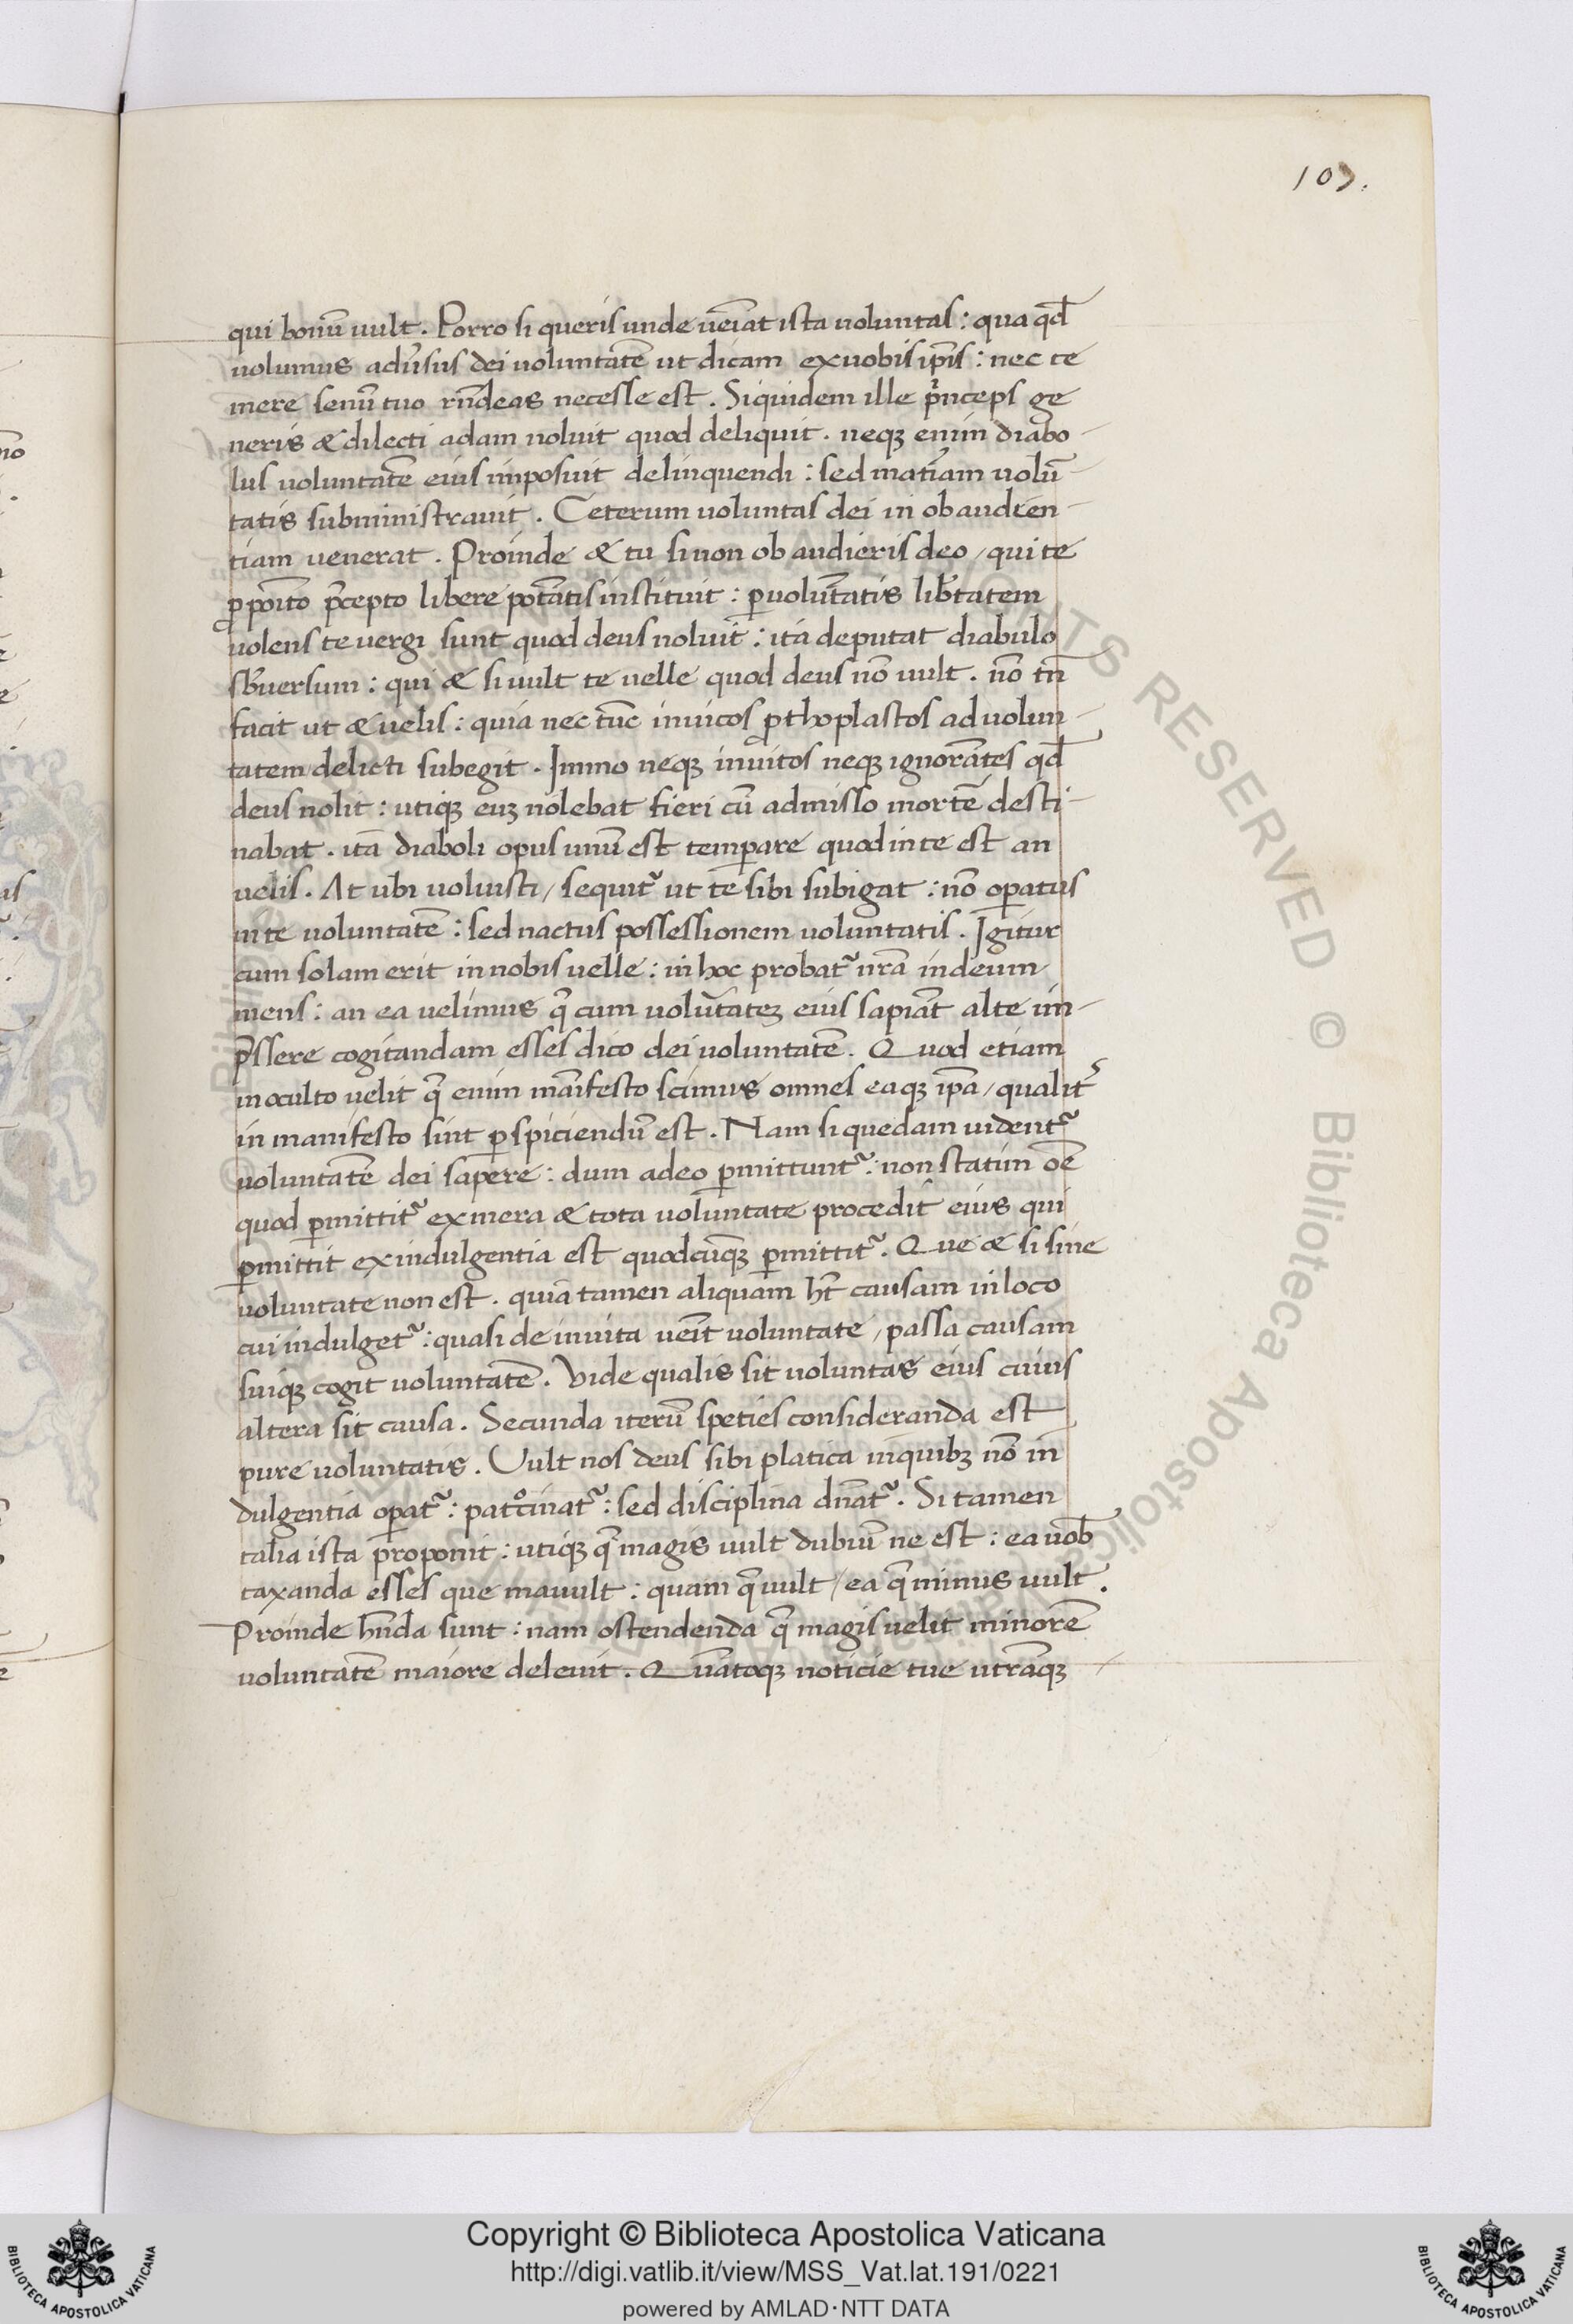 107.
qui bonū uult. Porro si queris unde uēiat ista uoluntas: qua qđ
uolumus adūsus dei uoluntatē ut dicam exuobis ip̄is: nec te
mere senū tuo rn̄deas necesse est. Siquidem ille pⁱnceps ge
neris & dilecti adam noluit quod deliquit. neqꝫ enim diabo-
lus uoluntatē eius imposuit delinquendi: sed mat̄iam uolū-
tatis subministrauit. Ceterum uoluntas dei in obaudien-
tiam uenerat. Proinde & tu si non ob audieris deo / qui te
ꝓpoīto p̄cepto libere potātis instituit: ꝑuolūtatis lib̄tatem
uolens te vergi sunt quod deus noluit: ita deputat diabulo
sb̄uersum: qui & si uult te uelle quod deus nō uult. nō tn̄
facit ut & uelis: quia nec tūc inuicos ꝓthoplastos ad uolun-
tatem delicti subegit. Immo neqꝫ inuitos neqꝫ ignorātes qđ
deus nolit: utiqꝫ eūꝫ nolebat fieri cū admisso mortē desti-
nabat. ita diaboli opus unū est temꝑare quod in te est an
uelis. At ubi uoluisti / sequit᷑ ut te sibi subigat: nō oꝑatus
in te uoluntatē: sed nactus possessionem uoluntatis. Igitur
cum solam erit in nobis uelle: in hoc probat᷑ nr̄a in deum
mens: an ea uelimus q̄ cum uolūtateꝫ eius sapiāt alte im-
p̄ssere cogitandam esses dico dei uoluntatē. Quod etiam
in oculto uelit q̄ enim māifesto scimus omnes eaqꝫ ip̄a / qualit᷑
in manifesto sint ꝑspiciendū est. Nam si quedam uident᷑
uoluntatē dei saꝑere: dum adeo ꝑmittunt᷑: non statim oē
quod ꝑmittit᷑ ex mera & tota uoluntate procedit eius qui
ꝑmittit ex indulgentia est quodcūqꝫ ꝑmittit᷑. Que & si sine
uoluntate non est. quia tamen aliquam ht̄ causam in loco
cui indulget᷑: quasi de inuita ueīt uoluntate / passa causam
suiqꝫ cogit uoluntatē. Vide qualis sit uoluntas eius cuius
altera sit causa. Secunda iterū speties consideranda est
pure uoluntatis. Vult nos deus sibi platica in quibꝫ nō in
dulgentia oꝑat᷑: patᵒcinat᷑: sed disciplina dn̄at᷑. Si tamen
talia ista proponit: utiqꝫ q̄ magis uult dubiū ne est: ea uob̄
taxanda esses que mauult: quam q̄ uult / ea q̄ minus uult.
Proinde hn̄da sunt: nam ostendenda q̄ magis uelit minorē
uoluntatē maiore deleuit. Quātoqꝫ noticie tue utrāqꝫ
Copyright © Biblioteca Apostolica Vaticana
http://digi.vatlib.it/view/MSS_Vat.lat.191/0221
powered by AMLAD·NTT DATA